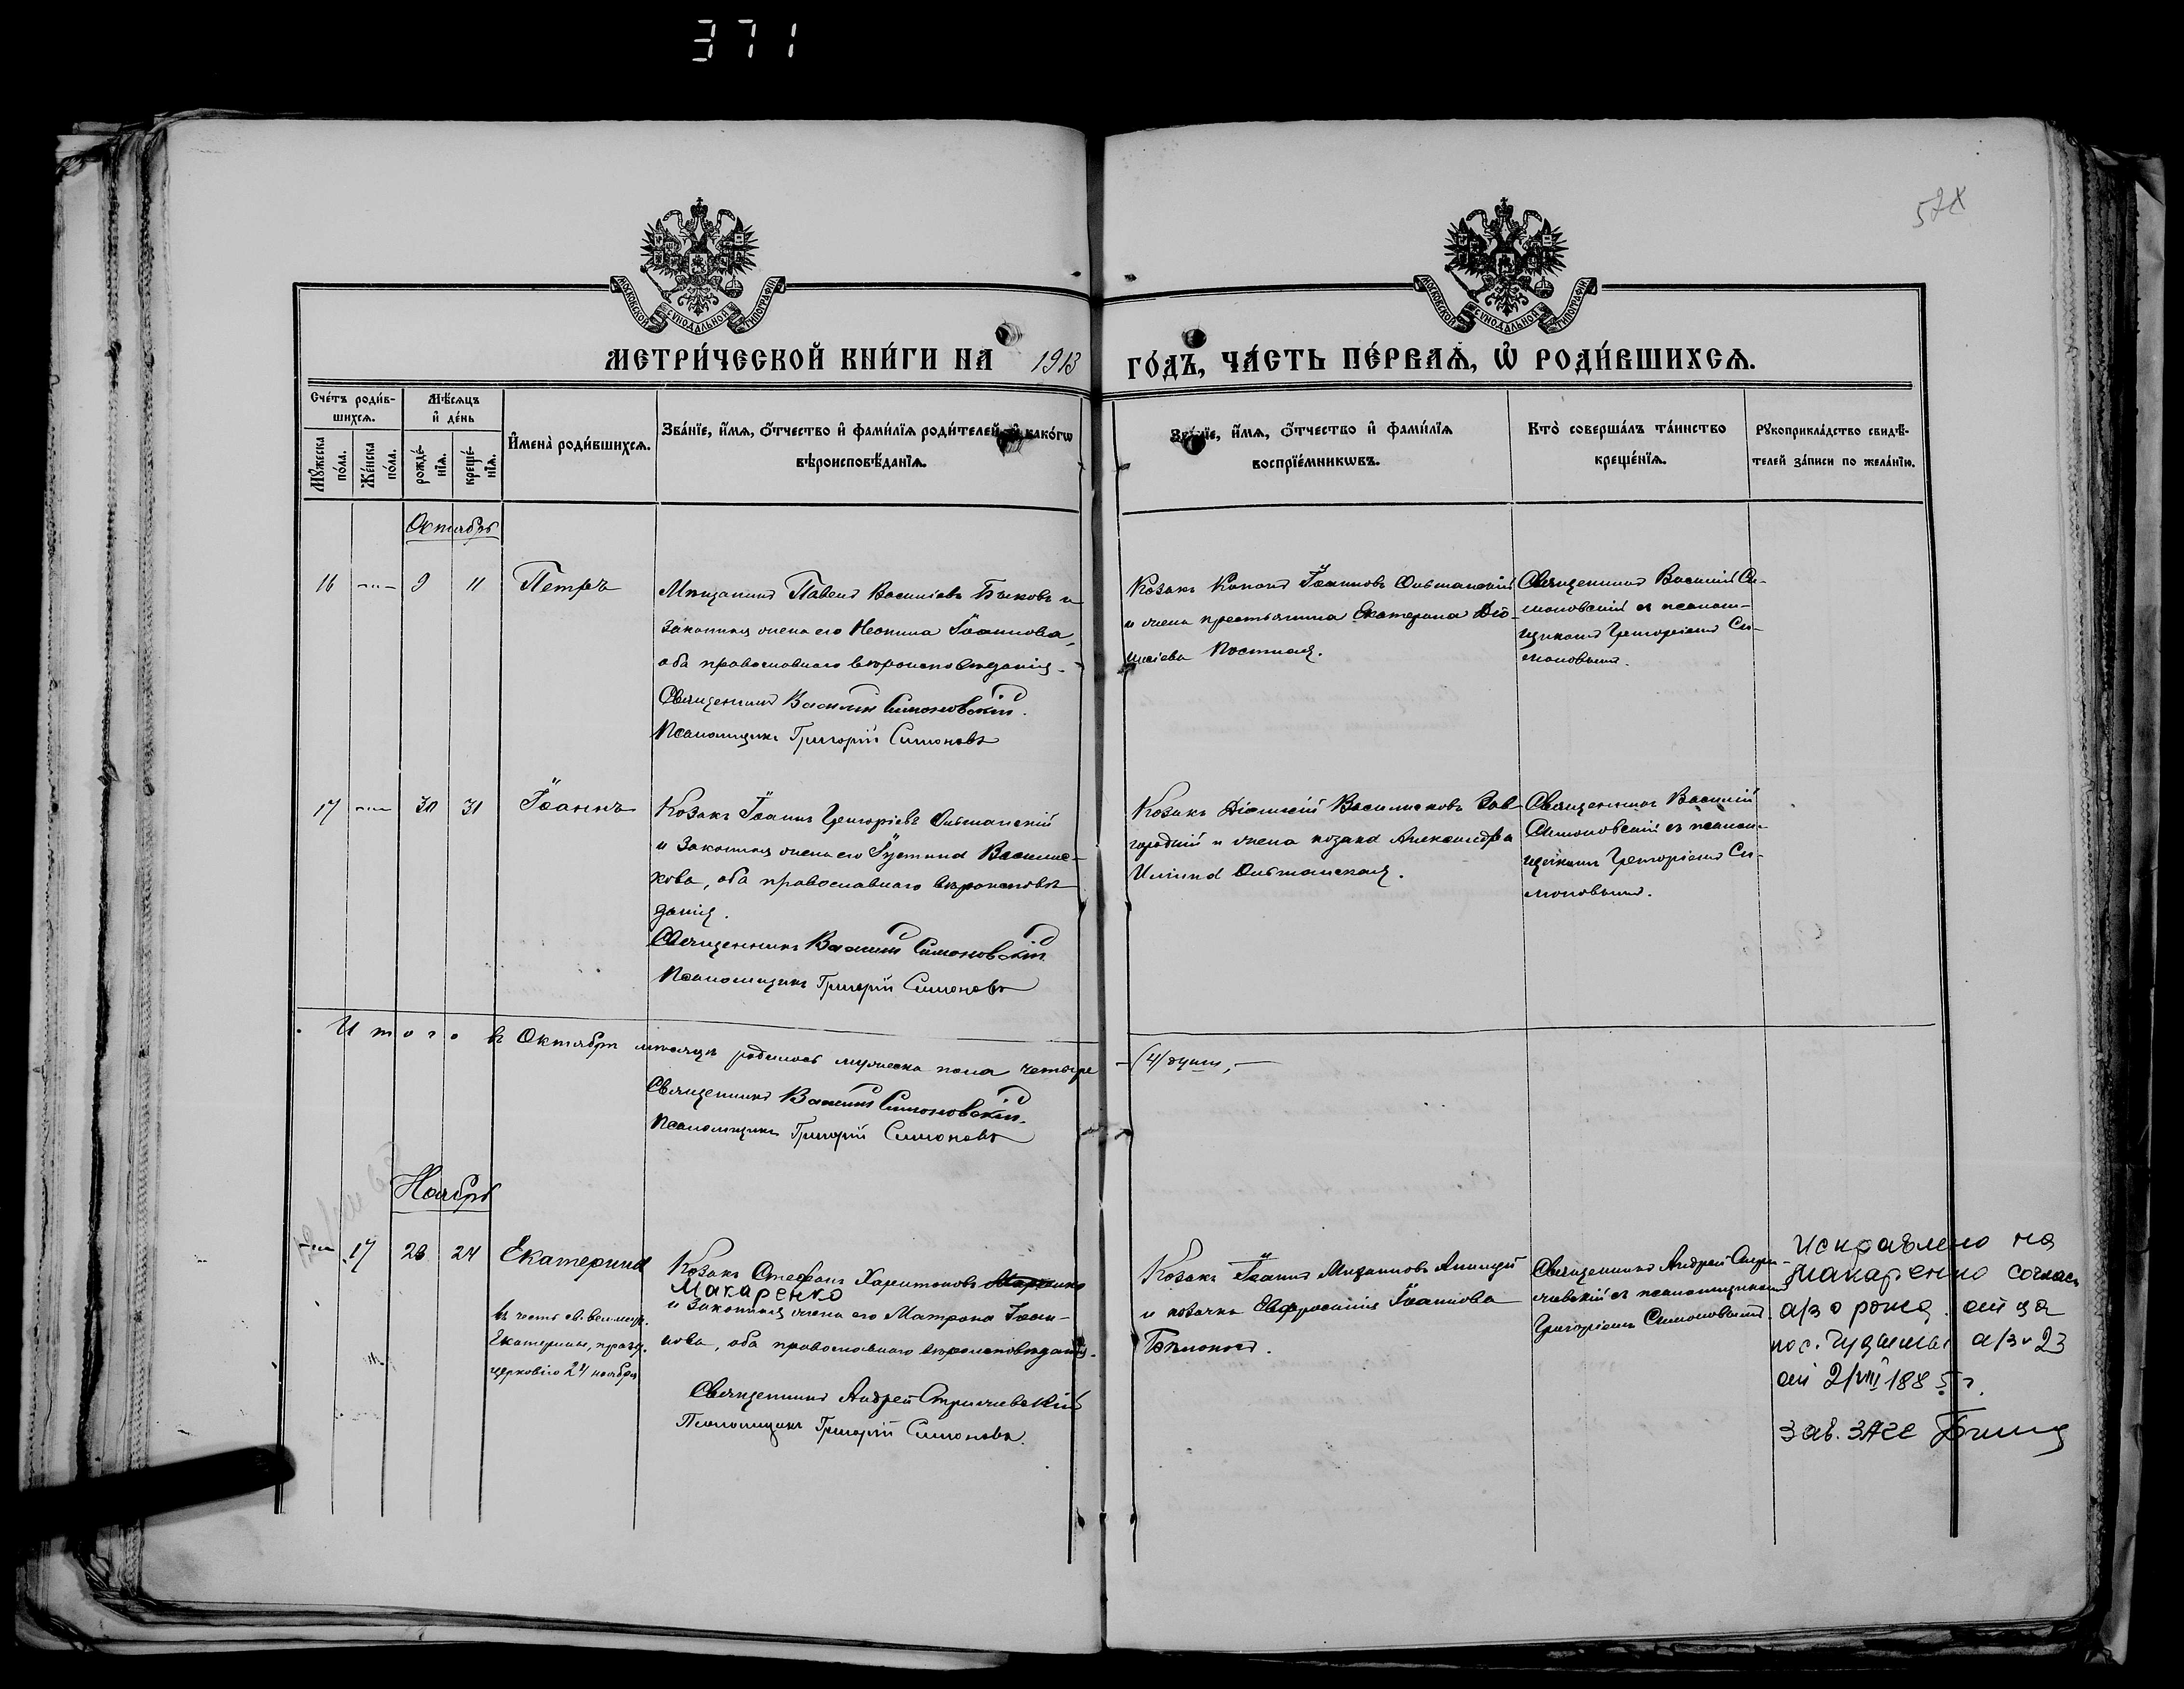 371
57
МОСКОВСКОЙ СѴНОДАЛЬНОЙ ТИПОГРАФІИ
МОСКОВСКОЙ СѴНОДАЛЬНОЙ ТИПОГРАФІИ
МЕТРИ́ЧЕСКОЙ КНИ́ГИ НА 1913 ГО́ДЪ, ЧА́СТЬ ПЕ́РВАѦ, Ѡ҆ РОДИ́ВШИХСѦ.
Сче́тъ роди́в-
шихсѧ.
Мѣ́сѧцъ
и҆ де́нь
Мꙋ́жеска
по́ла.
Же́нска
по́ла.
рожде́-
нїѧ.
креще́-
нїѧ.
И҆мена̀ роди́вшихсѧ.
Зва́нїе, и҆́мѧ, ѻ҆́тчество и҆ фами́лїѧ роди́телей, и҆ како́гѡ
вѣроисповѣ́данїѧ.
Зва́нїе, и҆́мѧ, ѻ҆́тчество и҆ фами́лїѧ
воспрїе́мникѡвъ.
Кто̀ соверша́лъ та́инство
креще́нїѧ.
Рꙋкоприкла́дство свидѣ́-
телей за́писи по жела́нїю.
Октябрь
16 9 11 Петръ
Мѣщанинъ Павелъ Василіевъ Быковъ и
законная жена его Неонила Іоаннова,
оба православнаго вѣроисповѣданія.
Священникъ Василій Симоновскій.
Псаломщикъ Григорій Симоновъ
Козакъ Іоанновъ Ольшанскій
и жена крестьянина Екатерина Діо-
нисіева
Священникъ Василій Си-
моновскій съ псалом-
щикомъ Григоріемъ Си-
моновымъ.
17 30 31 Іоаннъ
Козакъ Іоаннъ Григоріевъ Ольшанскій
и законная жена его Іустина Василис-
кова, оба православнаго вѣроисповѣ-
данія.
Священникъ Василій Симоновскій
Псаломщикъ Григорій Симоновъ
Козакъ Василисковъ Зав-
городній и жена козака Александра
Ольшанская.
Священникъ Василій
Симоновскій съ псалом-
щикомъ Григоріемъ Си-
моновымъ.
Итого въ Октябрѣ мѣсяцѣ родилось мужеска пола четыре (4) души,
Священникъ Василій Симоновскій.
Псаломщикъ Григорій Симоновъ
Ноябрь
17 23 24 Екатерина
въ честь св. вел.-муч.
Екатерины, празд.
церковію 24 ноября
Козакъ Стефанъ Харитоновъ
Макаренко
и законная жена его Матрона Іоан-
нова, оба православнаго вѣроисповѣданія.
Священникъ Андрей
Псаломщикъ Григорій Симоновъ.
Козакъ Іоаннъ
и козачка Евфросинія Іоаннова
Священникъ Андрей
съ псаломщикомъ
Григоріемъ Симоновымъ.
Исправлено на
Макаренко соглас
а/з о рожд. отца
а/з № 23
от 2/VIII 1885 г.
Зав. ЗАГС